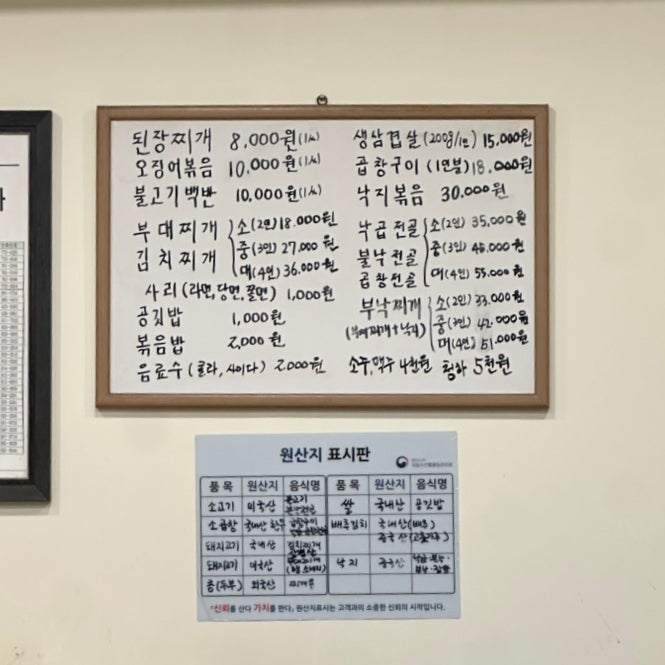 된장찌개 8,000원(1人)
오징어볶음 10,000원(1人)
불고기백반 10,000원(1人)
부대찌개
김치찌개
소(2인)18.000원
중(3인) 27,000원
대(4인) 36.000원
사리 (라면,당면,쫄면) 1,000원
공깃밥 1,000원
볶음밥 2,000원
음료수 (콜라, 사이다) 2.000원
생삼겹살(200g/1인) 15.000원
곱창구이 (1인분)18.000원
낙지볶음 30.000원
낙곱전골
불낙전골
곱창전골
소(2인) 35,000원
중(3인)
대(4인) 55.000원
부낙찌개
(부대찌개+낙지)
소(2인) 33.000원
중(3인) 42.000원
대(4인) 51.000원
소주,맥주 4천원 청하 5천원
원산지 표시판
품 목 원산지 음식명 품 목 원산지 음식명
소고기 미국산 불고기
쌀 국내산 공깃밥
소곱창 국내산 한우
배추김치 국내산(배추)
중국산(고춧가루)
돼지고기 국내산 김치찌개
돼지고기 미국산
낙지 중국산
콩(두부) 외국산 찌개류
"신뢰를 산다 가치를 판다, 원산지표시는 고객과의 소중한 신뢰의 시작입니다.